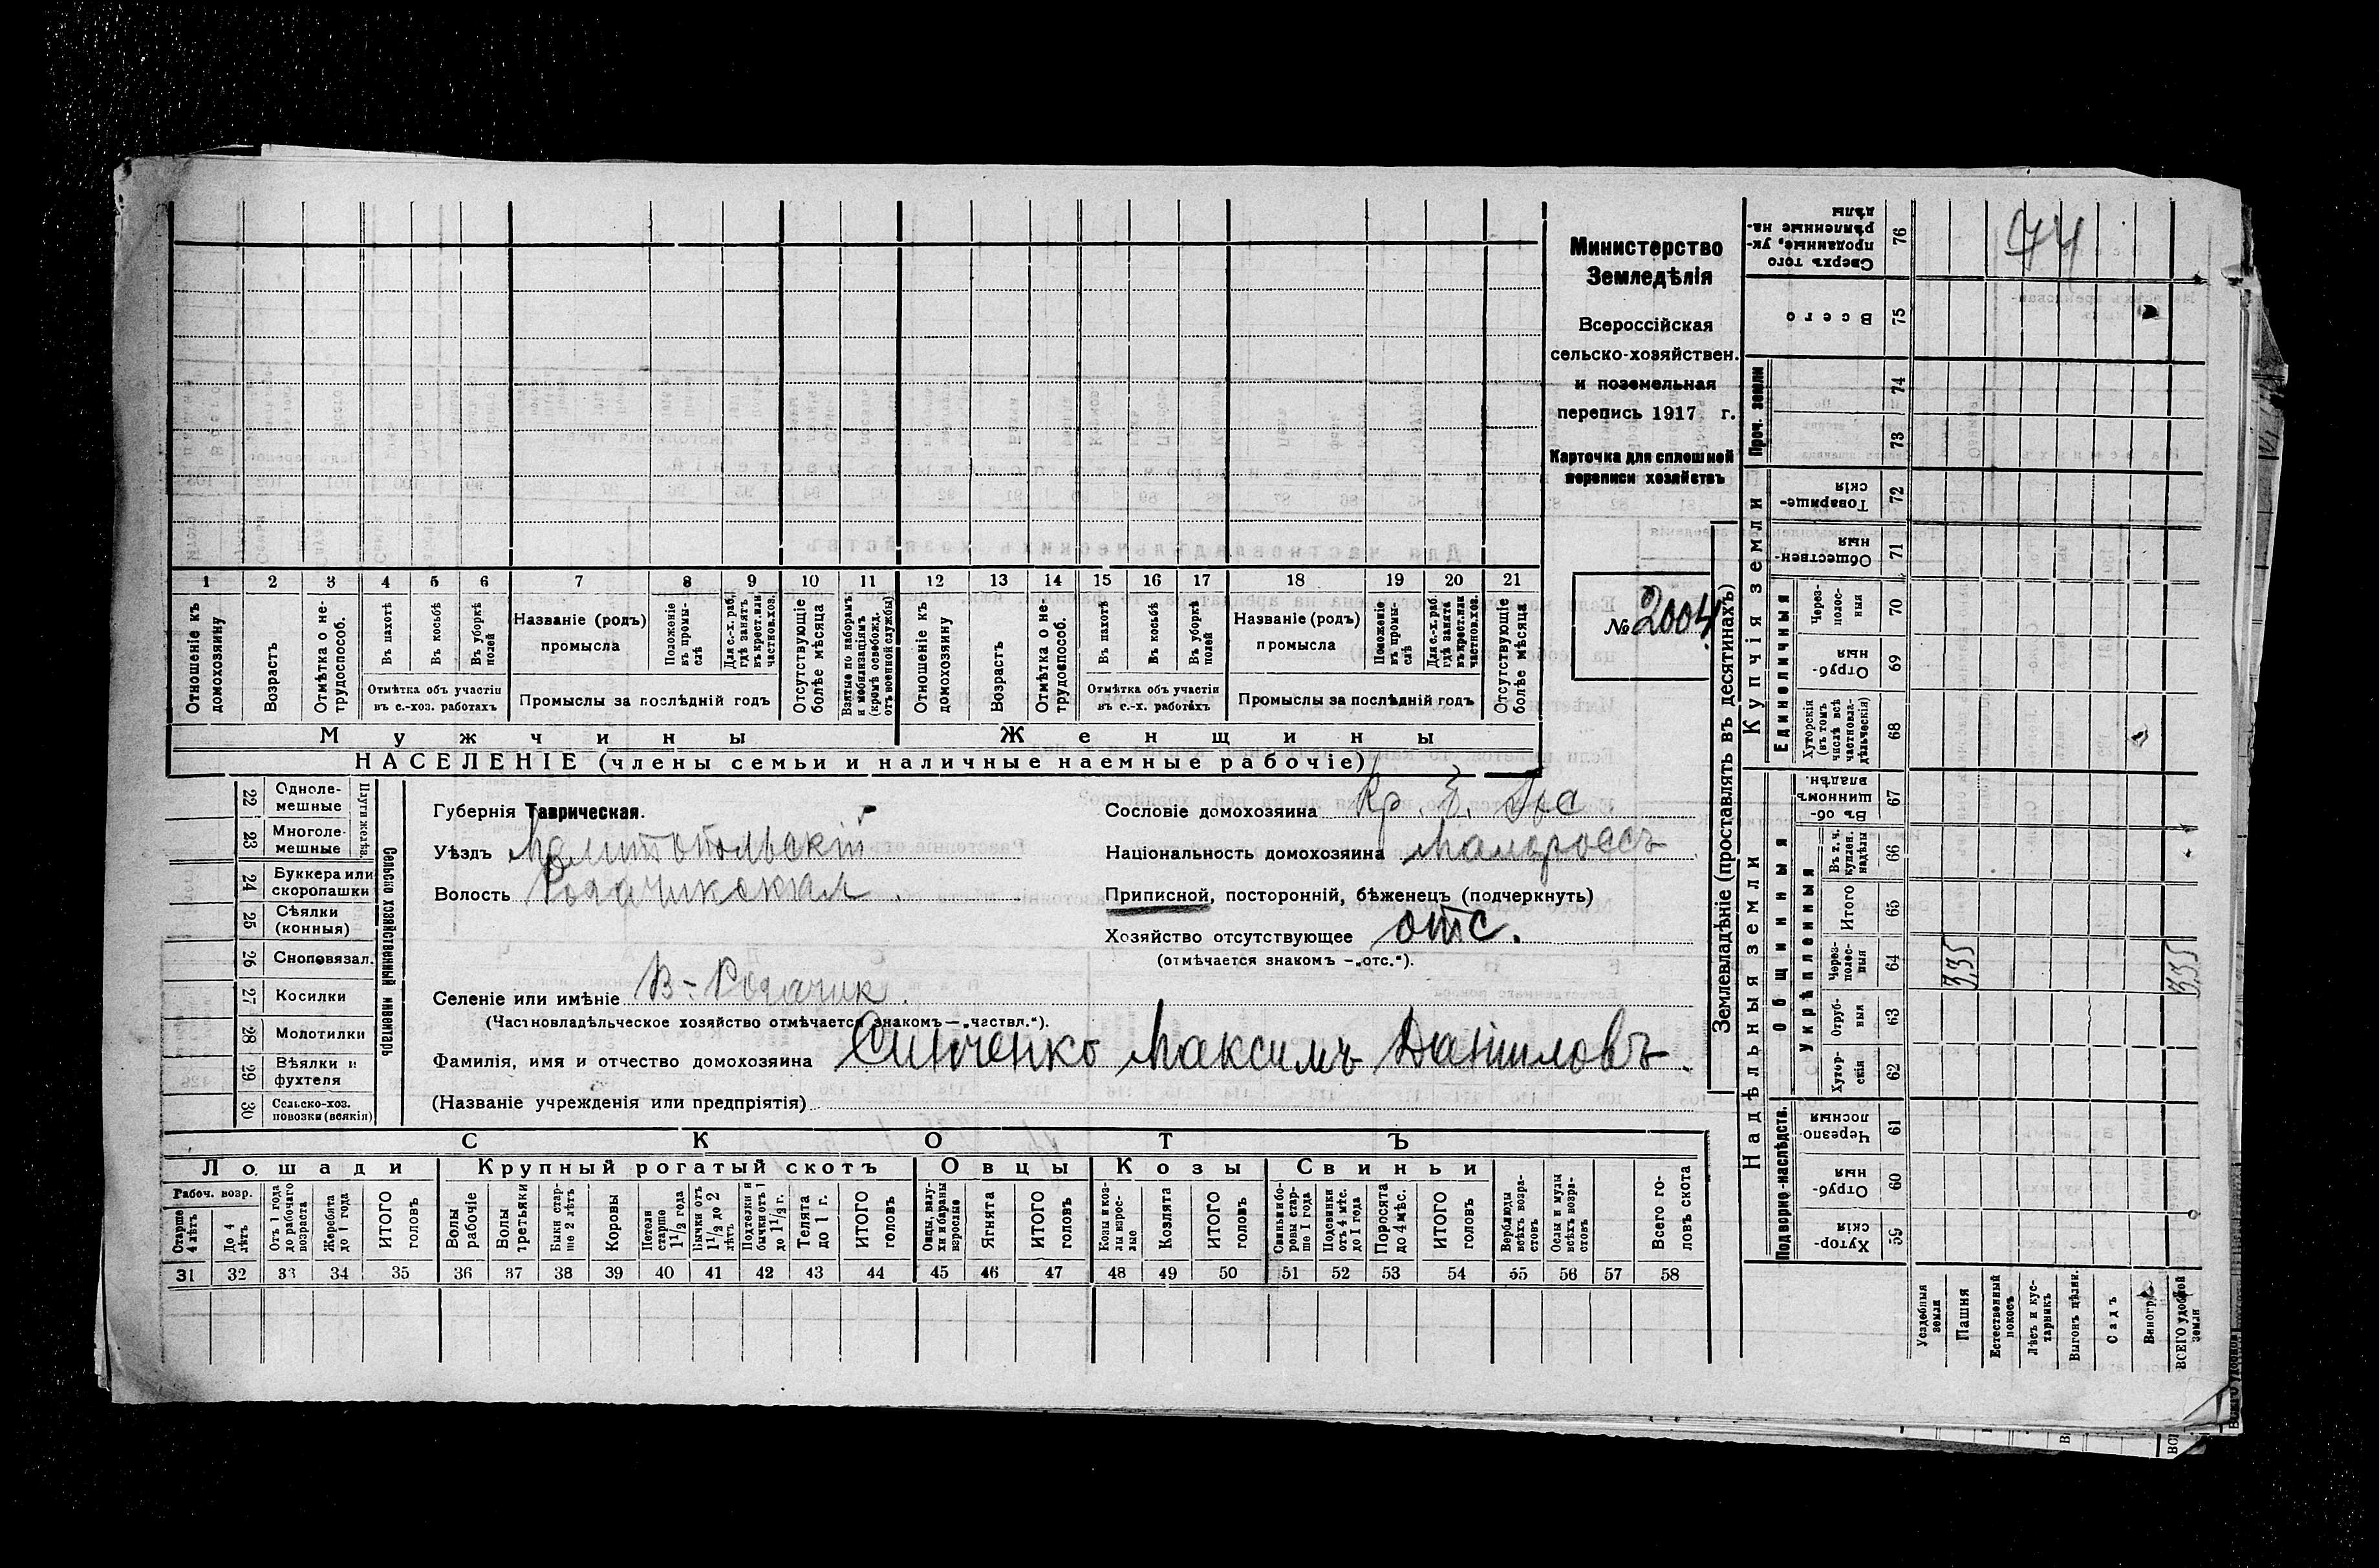 Министерство
Земледѣлія
Всероссійская
сельско-хозяйствен.
и поземельная
перепись 1917 г.
Карточка для сплошной
переписи хозяйствъ
№ 2004
1 2 3 4 5 6 7 8 9 10 11 12 13 14 15 16 17 18 19 20 21
Отношеніе къ домохозяину
Возрастъ
Отмѣтка о не-трудоспособ.
Въ пахотѣ
Въ косьбѣ
Въ уборкѣ полей
Отмѣтка объ участіи
въ с.-хоз. работахъ
Названіе (родъ)
промысла
Положеніе въ промы-слѣ
Для с.-х. раб. гдѣ занятъ въ крест. или частнов. хоз.
Промыслы за послѣдній годъ
Отсутствующіе болѣе мѣсяца
Взятые по наборамъ и мобилизаціямъ (кромѣ освобожд. отъ военной службы)
Отношеніе къ домохозяину
Возрастъ
Отмѣтка о не-трудоспособ.
Въ пахотѣ
Въ косьбѣ
Въ уборкѣ полей
Отмѣтка объ участіи
въ с.-х. работахъ
Названіе (родъ)
промысла
Положеніе въ промы-слѣ
Для с.-х. раб. гдѣ занята въ крест. или частнов. хоз.
Промыслы за послѣдній годъ
Отсутствующіе болѣе мѣсяца
Мужчины Женщины
НАСЕЛЕНІЕ (члены семьи и наличные наемные рабочіе)
Сельско хозяйственный инвентарь
Плуги желѣз.
22 Одноле-мешные
23 Многоле-мешные
24 Буккера или скоропашки
25 Сѣялки (конныя)
26 Сноповязал.
27 Косилки
28 Молотилки
29 Вѣялки и фухтеля
30 Сельско-хоз. повозки (всякія)
Губернія Таврическая.
Уѣздъ Мелитопольскій
Волость Рогачикская
Селеніе или имѣніе В-Рогачик
(Частновладѣльческое хозяйство отмѣчается знакомъ—„частвл.“).
Фамилія, имя и отчество домохозяина Синченко Максимъ Даниловъ.
(Названіе учрежденія или предпріятія)
Сословіе домохозяина Кр.
Національность домохозяина Малороссъ
Приписной, посторонній, бѣженецъ (подчеркнуть)
Хозяйство отсутствующее отс.
(отмѣчается знакомъ —„отс.“).
СКОТЪ
Лошади Крупный рогатый скотъ Овцы Козы Свиньи
Рабоч. возр.
Старше 4 лѣтъ
До 4 лѣтъ
Отъ 1 года до рабочаго возраста
Жеребята до 1 года
ИТОГО головъ
Волы рабочіе
Волы третьяки
Быки стар-ше 2 лѣтъ
Коровы
Нетели старше 1 1/2 года
Бычки отъ 1 1/2 до 2 лѣтъ
Подтелки и бычки отъ 1 до 1 1/2 г.
Телята до 1 г.
ИТОГО головъ
Овцы, валу-хи и бараны взрослые
Ягнята
ИТОГО головъ
Козы и коз-лы взрос-лые
Козлята
ИТОГО головъ
Свиньи и бо-ровы стар-ше 1 года
Подсвинки отъ 4 мѣс. до 1 года
Поросята до 4 мѣс.
ИТОГО головъ
Верблюды всѣхъ возра-стовъ
Ослы и мулы всѣхъ возра-стовъ
Всего го-ловъ скота
31 32 33 34 35 36 37 38 39 40 41 42 43 44 45 46 47 48 49 50 51 52 53 54 55 56 57 58
Землевладѣніе (проставлять въ десятинахъ)
Надѣльныя земли
Купчія земли
Подворно-наслѣдств.
Общинныя
Укрѣпленныя
Единоличныя
Проч. земли
76 Сверхъ того проданные, ук-рѣпленные на-дѣлы
75 Всего
74
73
72 Товарище-скія
71 Обществен-ныя
70 Через-полос-ныя
69 Отруб-ныя
68 Хуторскія (въ томъ числѣ всѣ частновла-дѣльческія)
67 Въ об-щинномъ владѣн.
66 Въ т. ч. куплен. надѣлы
65 Итого
64 Через-полос-ныя
63 Отруб-ныя
62 Хутор-скія
61 Черезпо-лосныя
60 Отруб-ныя
59 Хутор-скія
74
335
335
Усадебныя земли
Пашня
Естественный покосъ
Лѣсъ и кус-тарникъ
Выгонъ цѣлин.
Садъ
Виногр.
ВСЕГО удобной земли